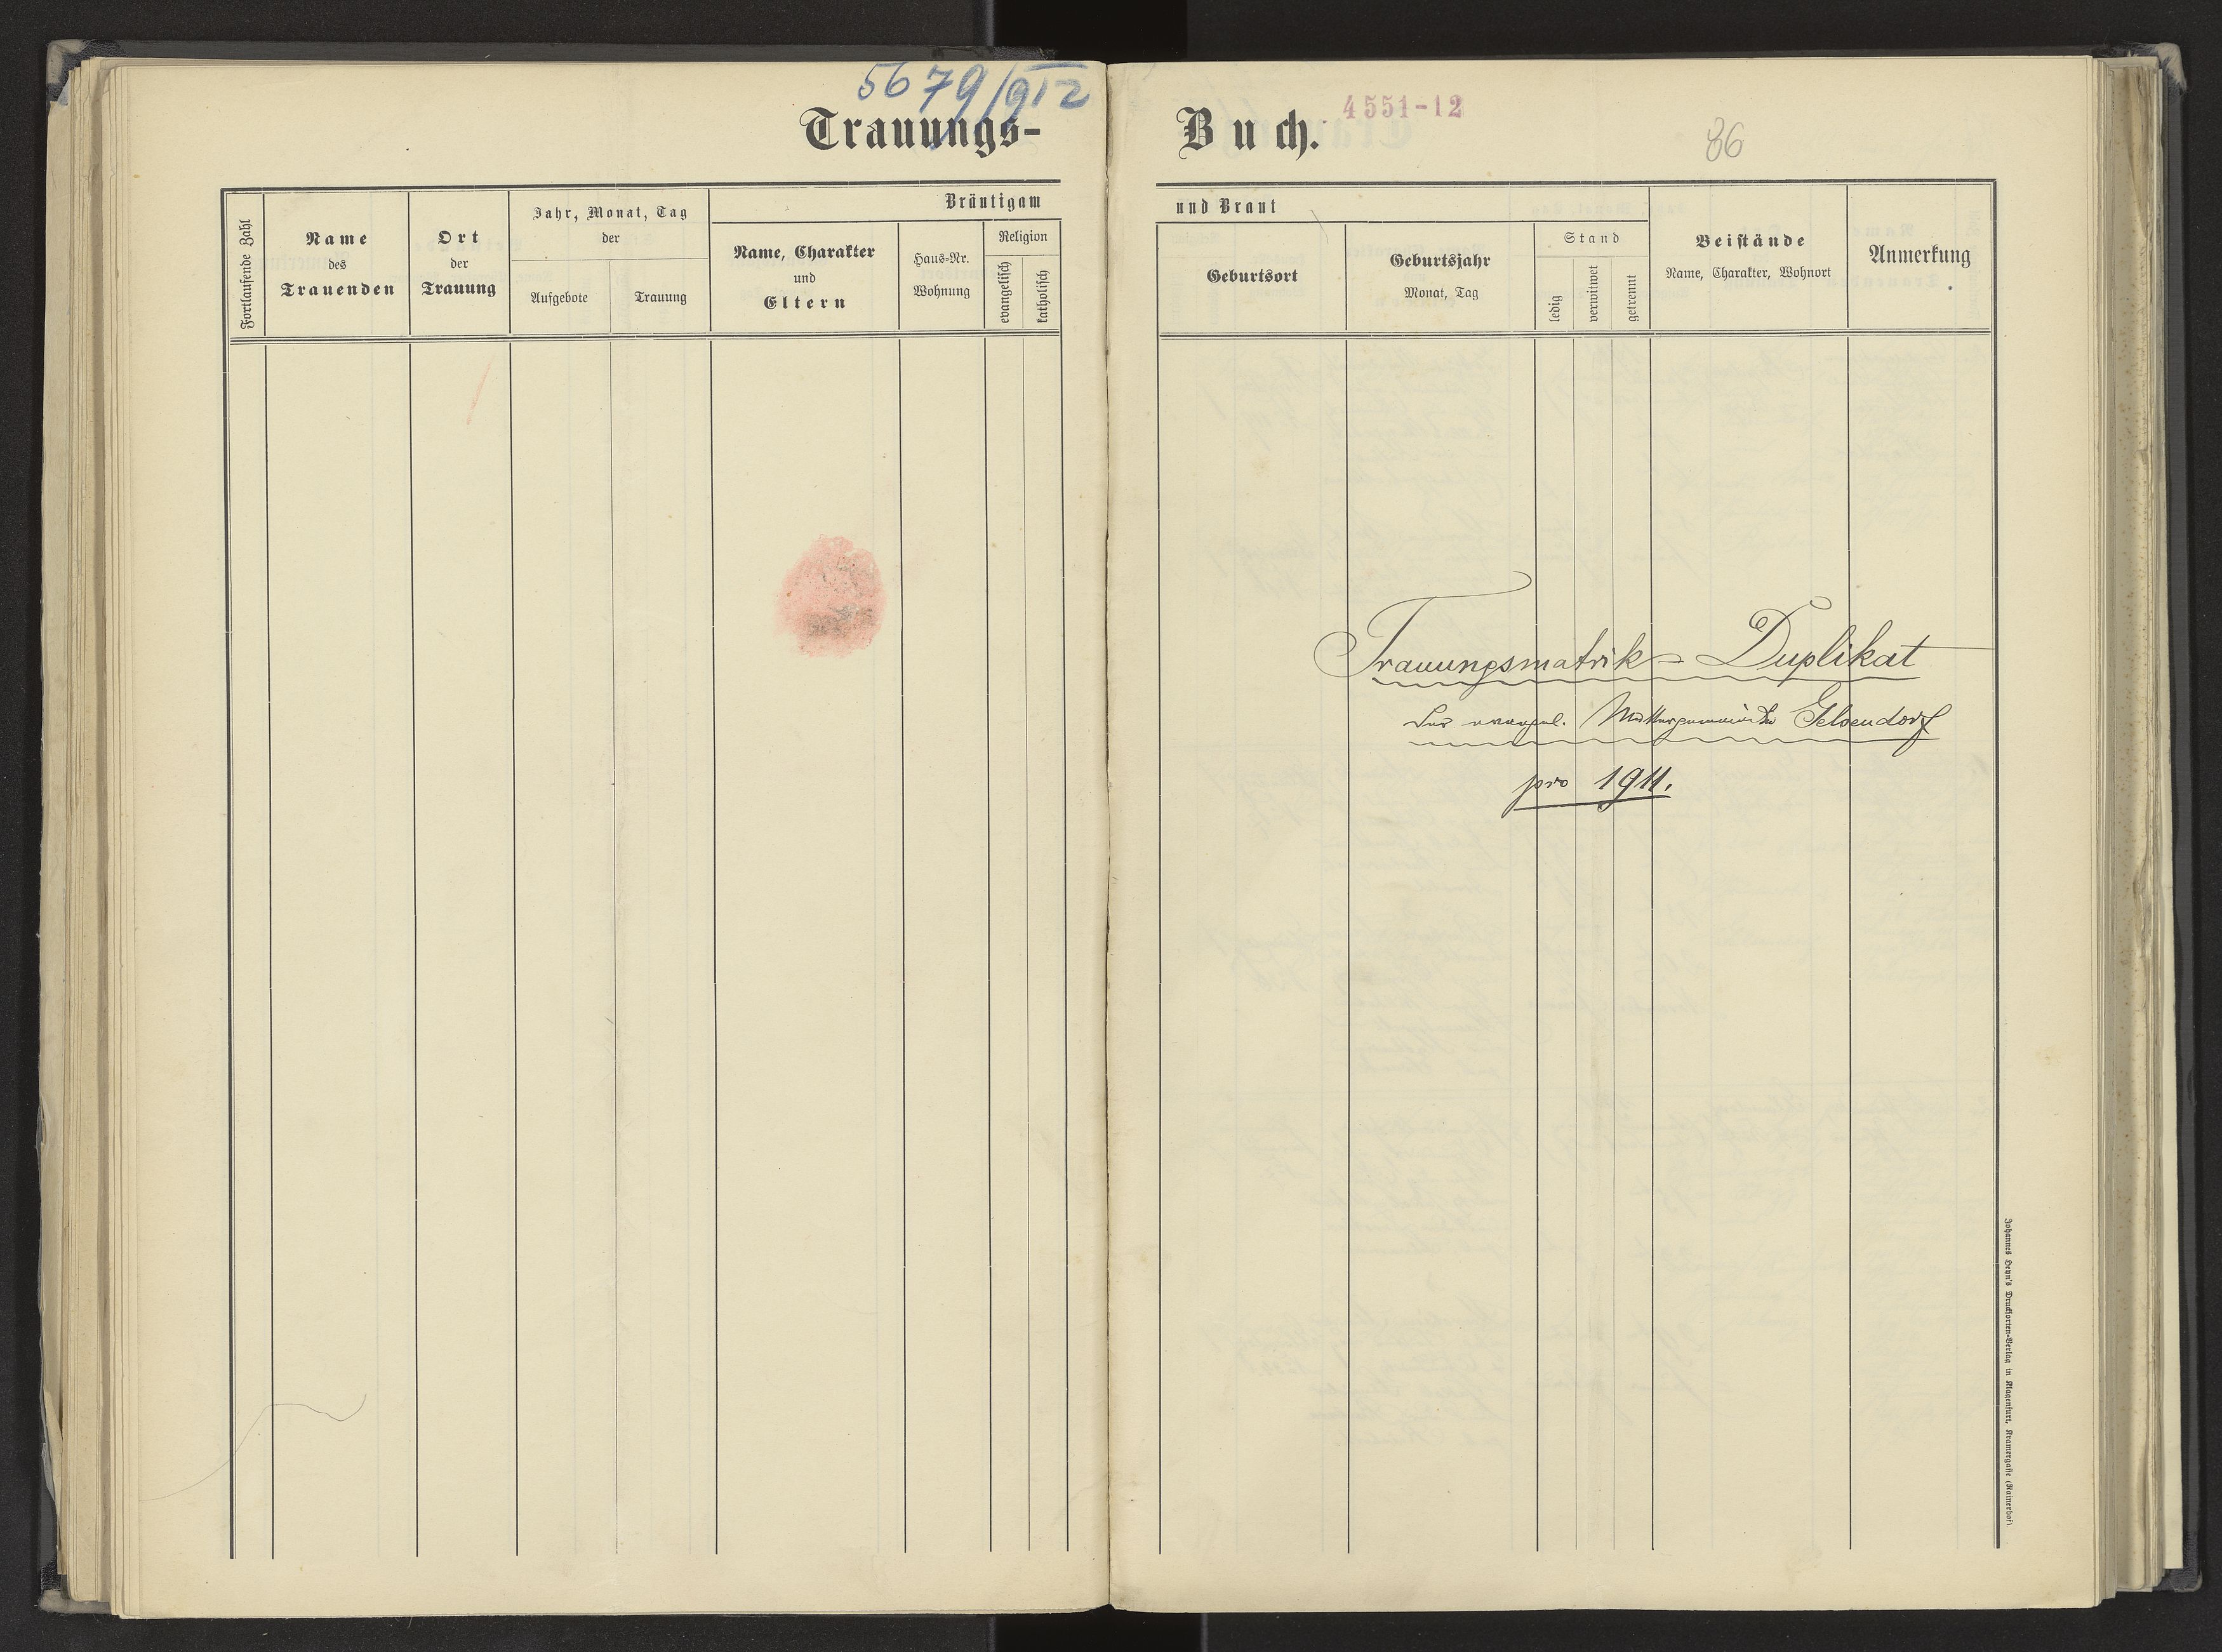 5679/912
Trauungs-
Fortlaufende Zahl
Name
des
Trauenden
Ort
der
Trauung
Jahr, Monat, Tag
der
Aufgebote
Trauung
Bräutigam
Name, Charakter
und
Eltern
Haus-Nr.
Wohnung
Religion
evangelisch
katholisch
Buch.
4551-12
86
und Braut
Geburtsort
Geburtsjahr
Monat, Tag
Stand
ledig
verwitwet
getrennt
Beistände
Name, Charakter, Wohnort
Anmerkung
Trauungsmatrik-Duplikat
der evangel. Muttergemeinde Gelsendorf
pro 1911.
Johannes Heyn's Drucksorten-Verlag in Klagenfurt, Kramergasse (Rainerhof).